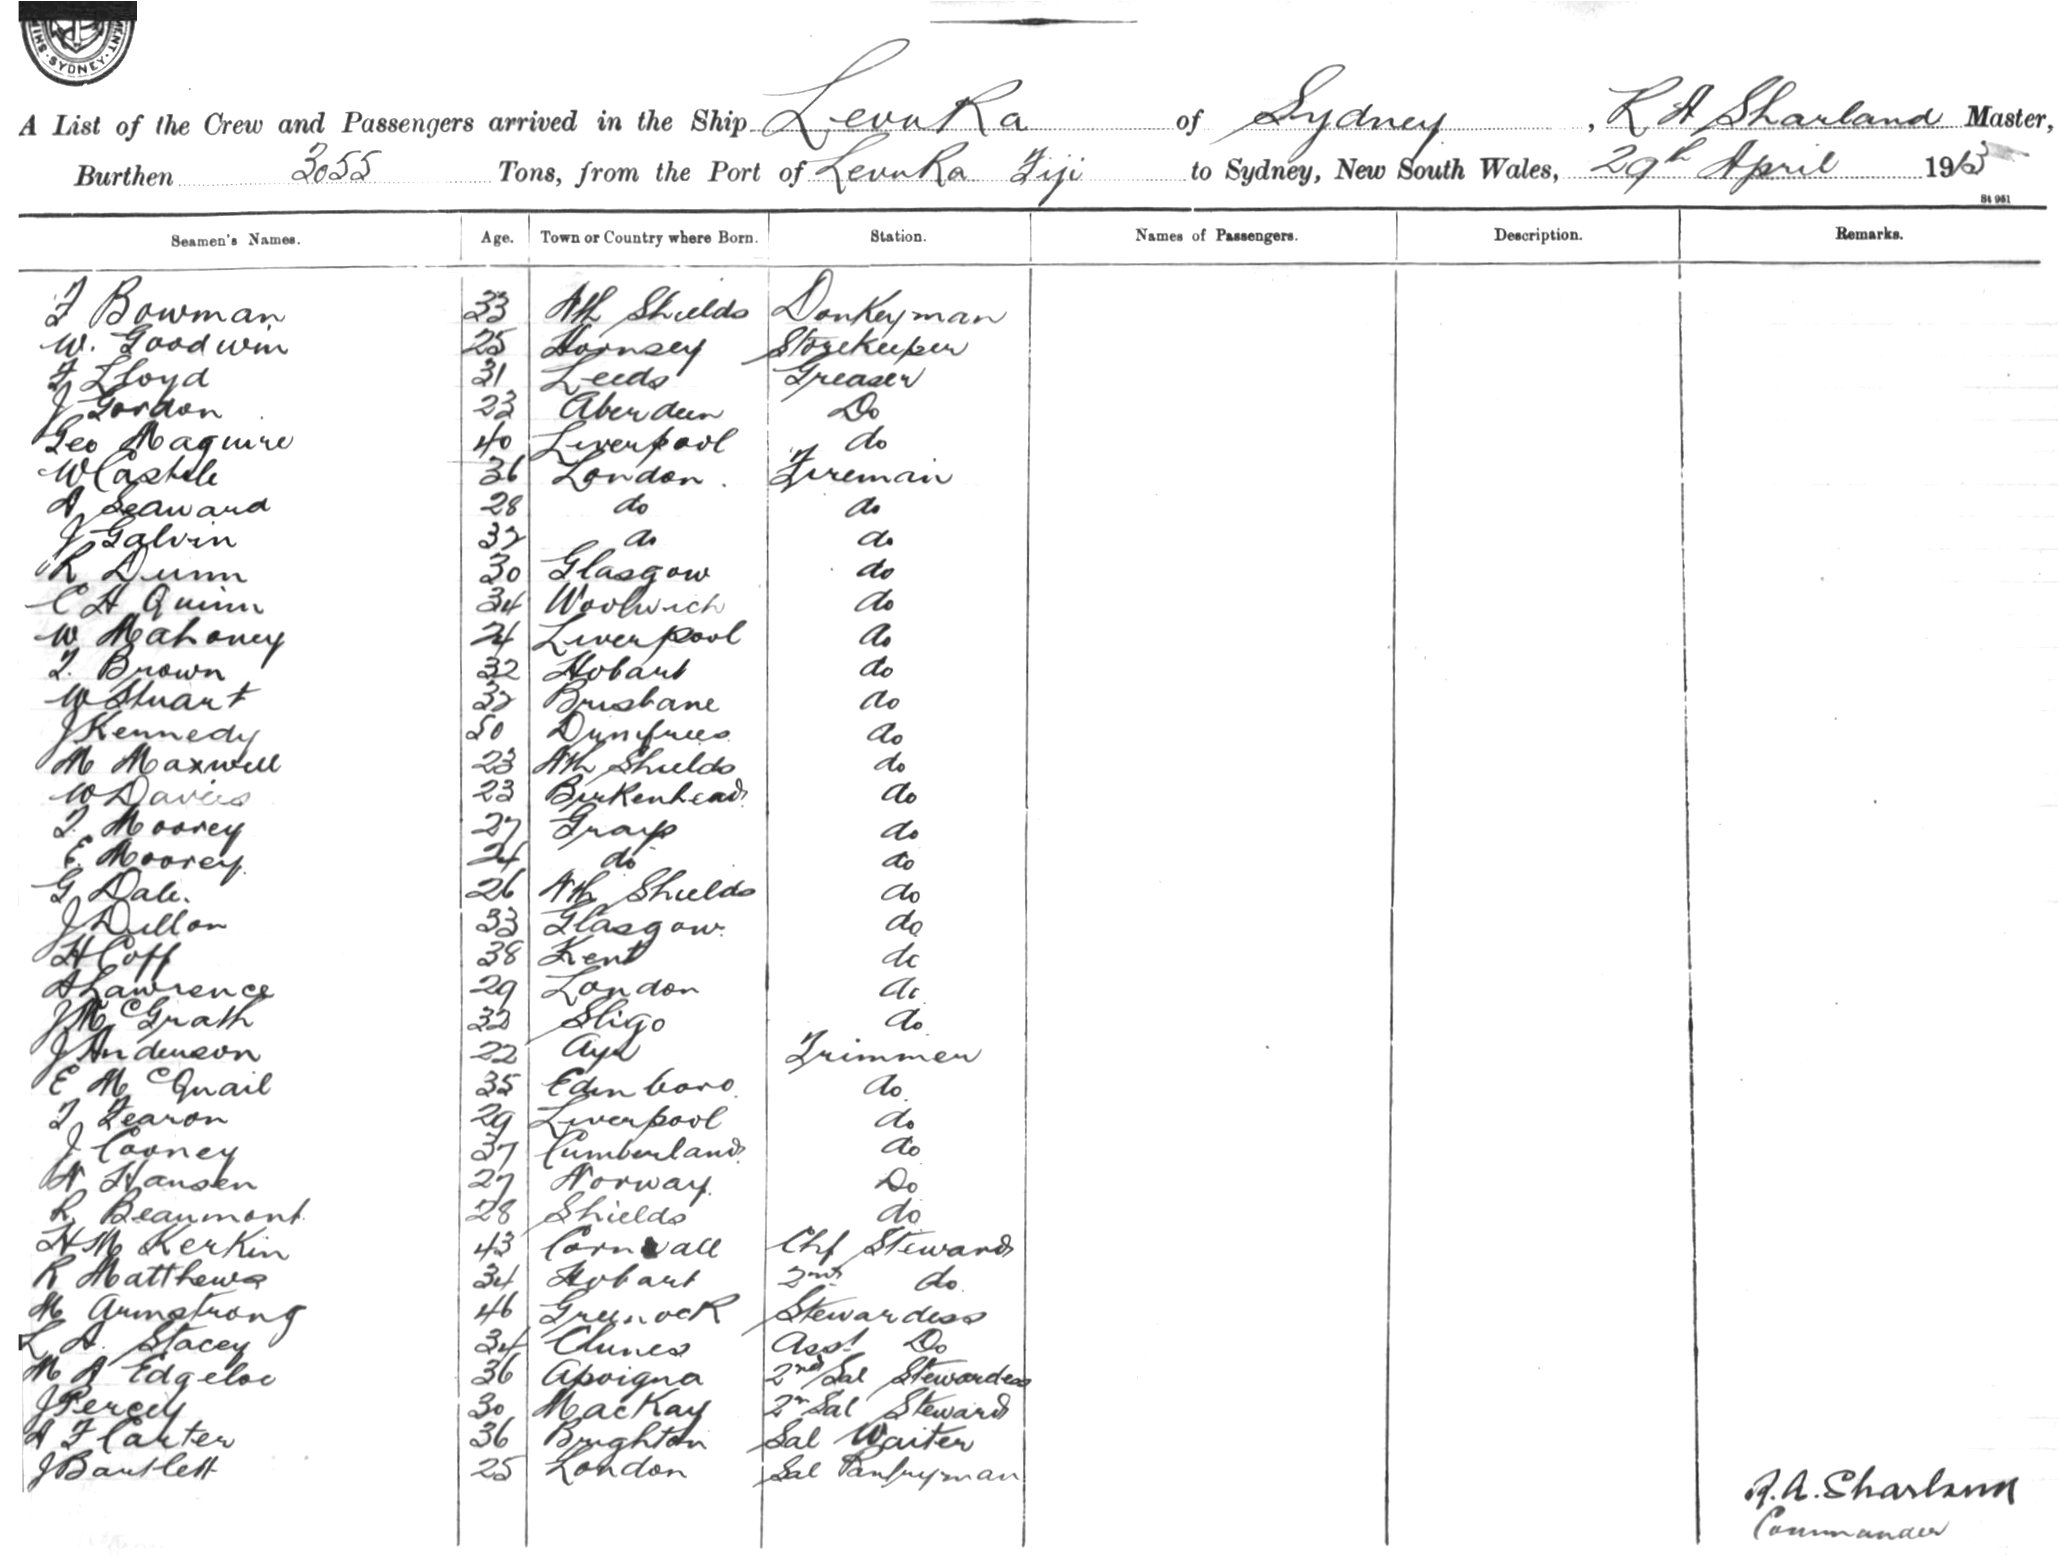 MENT · SYDNEY · SHIP
A List of the Crew and Passengers arrived in the Ship Levuka of Sydney, R A Sharland Master,
Burthen 3055 Tons, from the Port of Levuka Fiji to Sydney, New South Wales, 29th April 1913
St 951
Seamen's Names. Age. Town or Country where Born. Station. Names of Passengers. Description. Remarks.
F Bowman 33 Nth Shields Donkeyman
W. Goodwin 25 Hornsey Storekeeper
F Lloyd 31 Leeds Greaser
J Gordon 23 Aberdeen Do
Geo Maguire 40 Liverpool do
W Castele 36 London. Fireman
A Seaward 28 do do
J Galvin 32 do do
R Dunn 30 Glasgow do
C H Quinn 34 Woolwich do
W Mahoney 24 Liverpool do
T. Brown 32 Hobart do
W Stuart 32 Brisbane do
J Kennedy 50 Dumfries do
M Maxwell 23 Nth Shields do
W Davies 23 Birkenhead do
T. Moorey 27 Grays do
E. Moorey 24 do do
G Dale. 26 Nth Shields do
J Dillon 33 Glasgow. do
H Coff 38 Kent do
A Lawrence 29 London do
J McGrath 32 Sligo do
J Anderson 22 Ayr Trimmer
E McQuail 35 Edinboro do
T Fearon 29 Liverpool do
J Cooney 37 Cumberland do
N Hansen 27 Norway. Do
R. Beaumont. 28 Shields do
H M Kerkin 43 Cornwall Chf Steward
R Matthews 34 Hobart 2nd do
M Armstrong 46 Greenock Stewardess
L A. Stacey 34 Clunes Asst Do
M A Edgeloe 36 Apoigna 2nd Sal Stewardess
J Percey 30 MacKay 2n Sal Steward
A F Carter 36 Brighton Sal Waiter
J Bartlett 25 London Sal Pantryman
R. A. Sharland
Commander